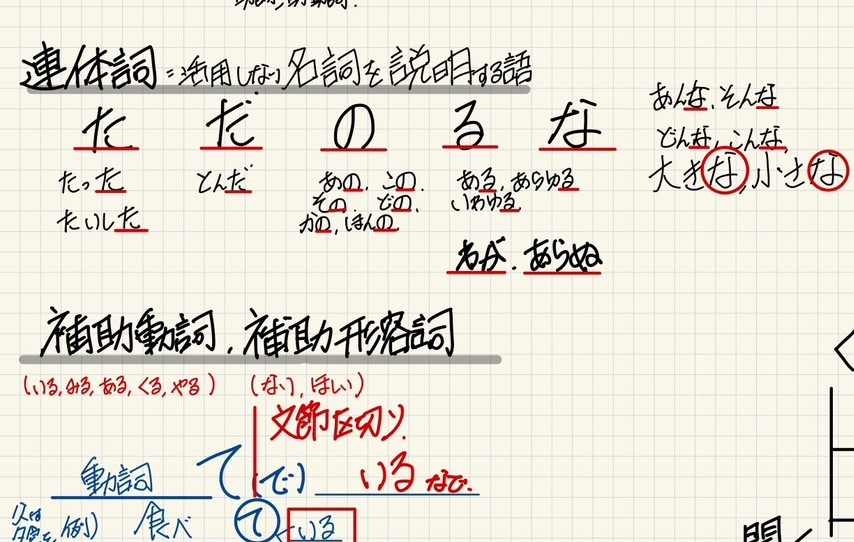 連体詞=活用しない名詞を説明する語
た だ の る な
あんな、そんな
どんな、こんな、
大きな、小さな
たった とんだ あの、この、 ある、あらゆる
たいした その、どの、 いわゆる
かの、ほんの
わが、あらぬ
補助動詞、補助形容詞
(いる,みる,ある,くる,やる) (ない,ほしい)
文節区切り
動詞 て(で) いる など
例) 食べ て いる